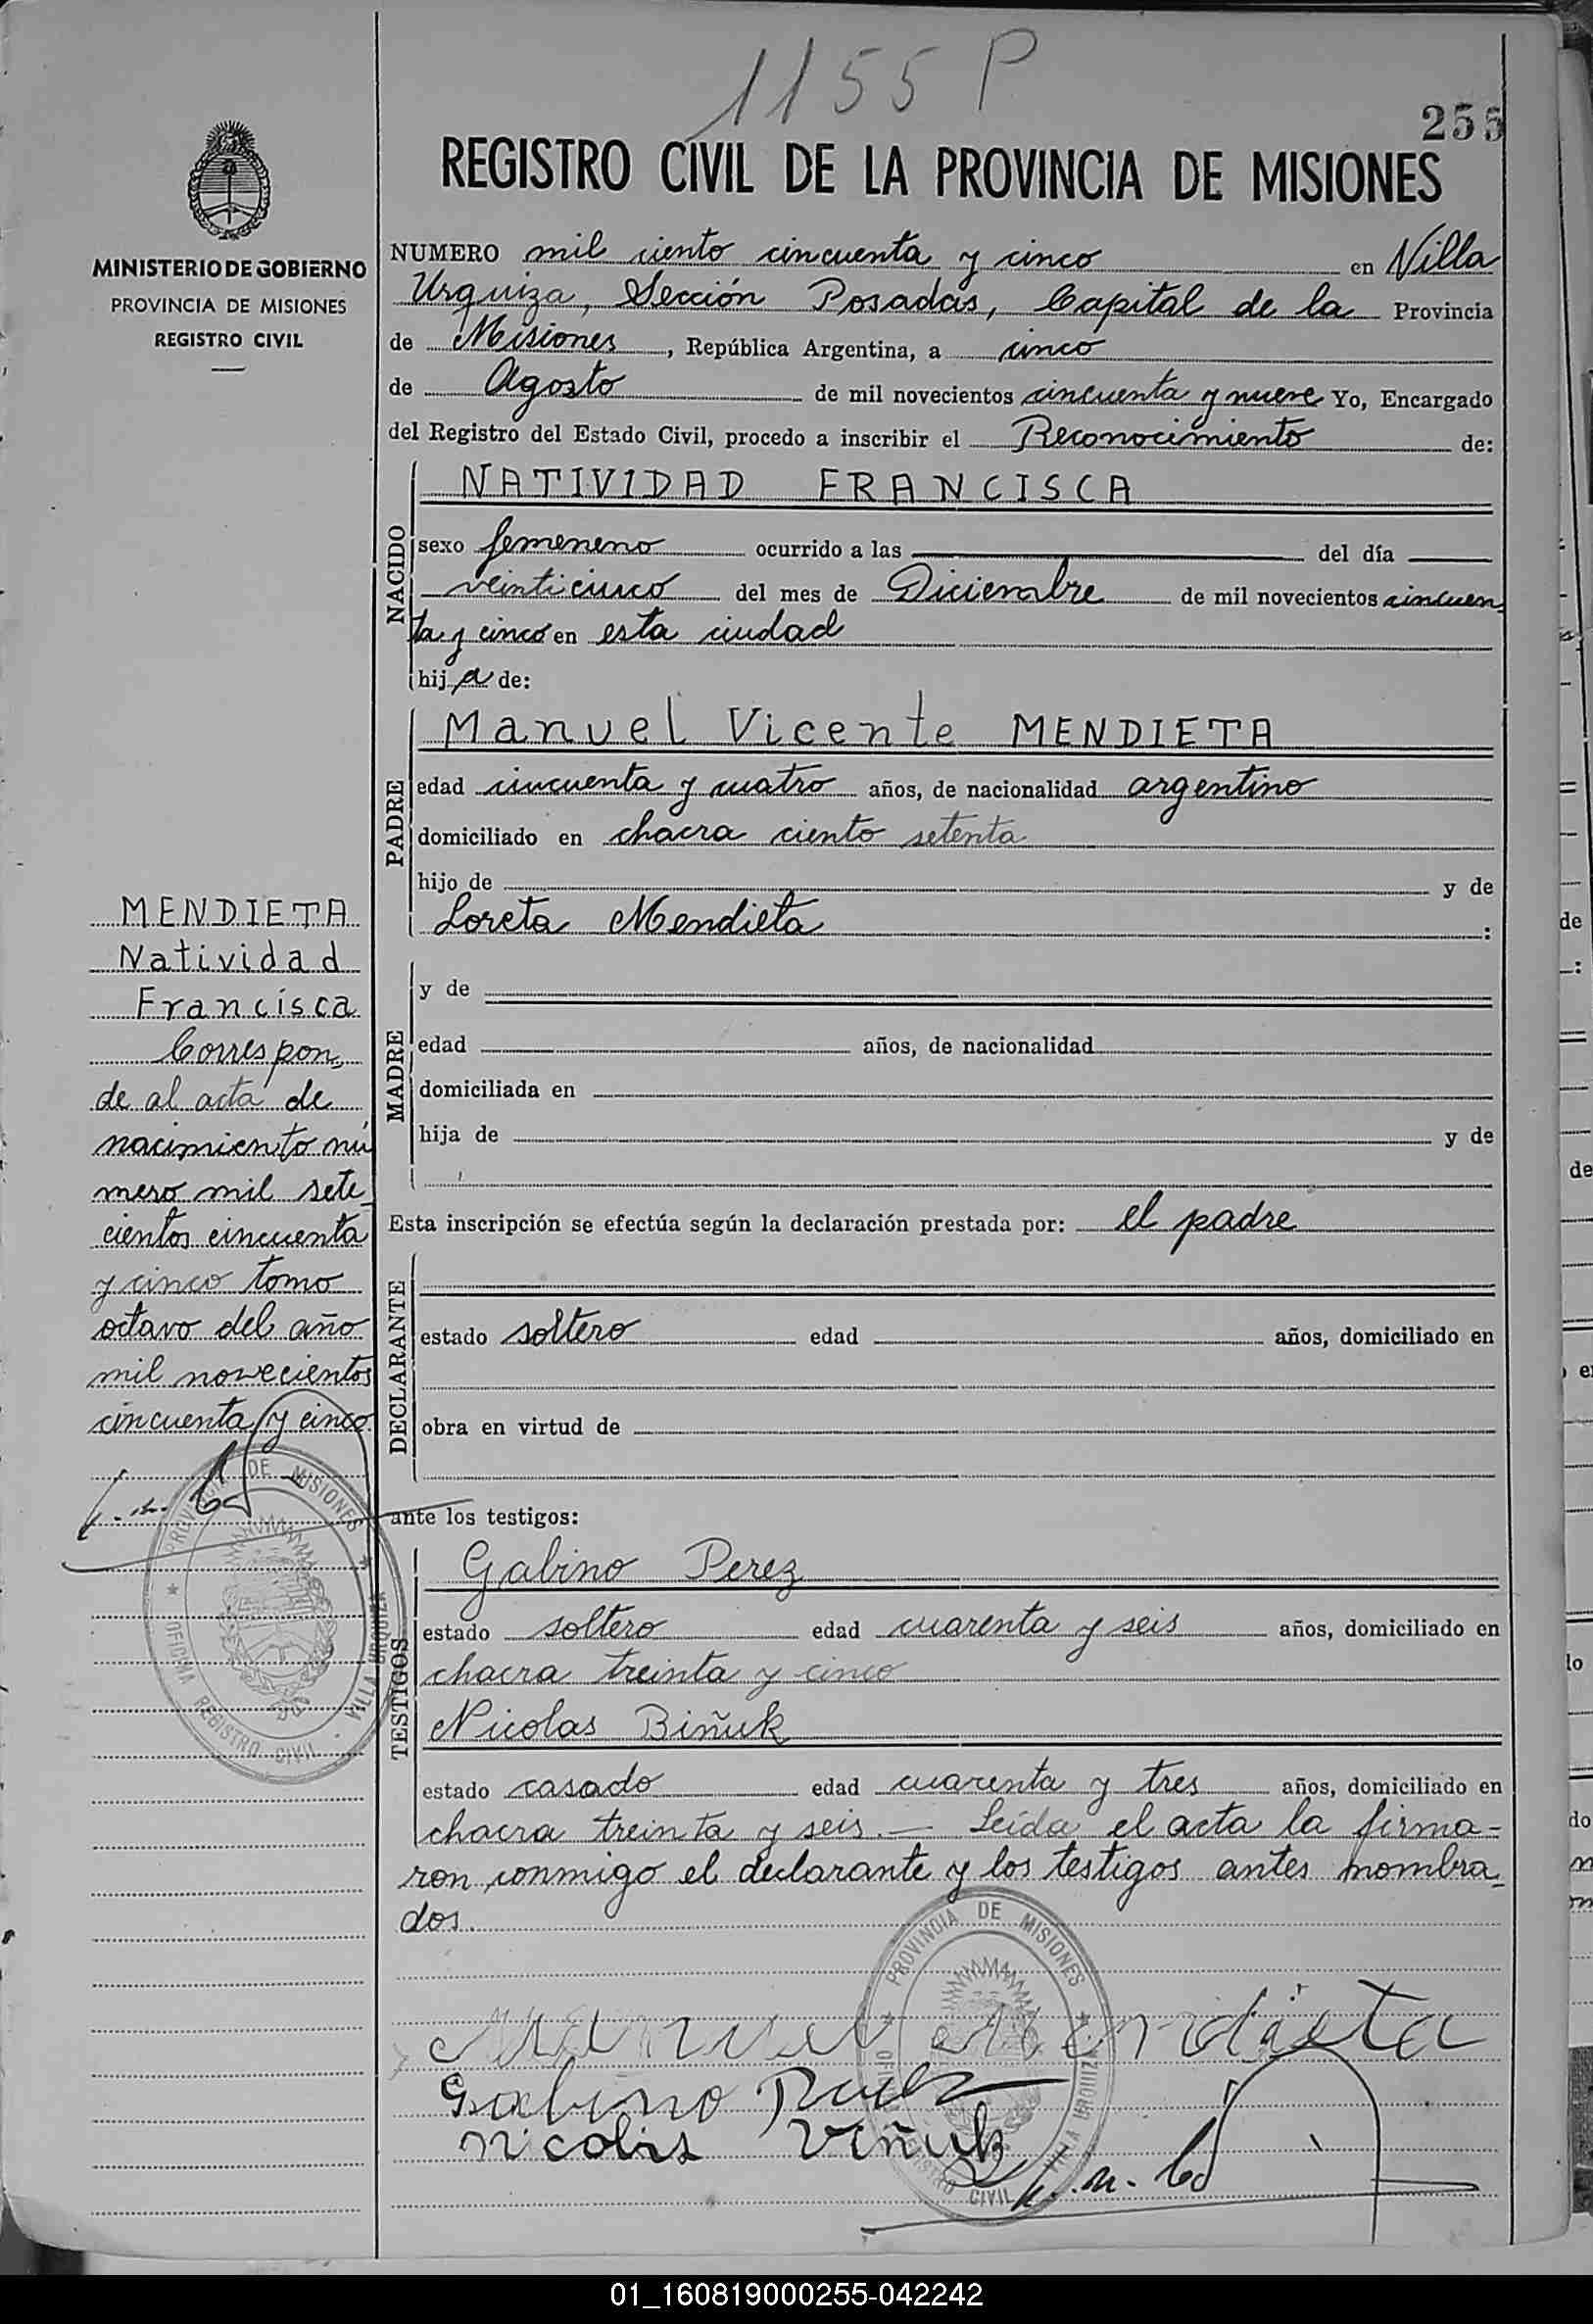 1155 P
255
REGISTRO CIVIL DE LA PROVINCIA DE MISIONES
MINISTERIO DE GOBIERNO
PROVINCIA DE MISIONES
REGISTRO CIVIL
NUMERO mil ciento cincuenta y cinco en Villa
Urquiza, Sección Posadas, Capital de la Provincia
de Misiones, República Argentina, a cinco
de Agosto de mil novecientos cincuenta y nueve Yo, Encargado
del Registro del Estado Civil, procedo a inscribir el Reconocimiento de:
NACIDO
NATIVIDAD FRANCISCA
sexo femeneno ocurrido a las del día
veinticinco del mes de Diciembre de mil novecientos cincuen
ta y cinco en esta ciudad
hija de:
PADRE
Manuel Vicente MENDIETA
edad cincuenta y cuatro años, de nacionalidad argentino
domiciliado en chacra ciento setenta
hijo de y de
Loreta Mendieta :
MADRE
y de
edad años, de nacionalidad
domiciliada en
hija de y de
Esta inscripción se efectúa según la declaración prestada por: el padre
DECLARANTE
estado soltero edad años, domiciliado en
obra en virtud de
ante los testigos:
TESTIGOS
Gabino Perez
estado soltero edad cuarenta y seis años, domiciliado en
chacra treinta y cinco
Nicolas Biñuk
estado casado edad cuarenta y tres años, domiciliado en
chacra treinta y seis.— Leída el acta la firma-
ron conmigo el declarante y los testigos antes nombra-
dos.
MENDIETA
Natividad
Francisca
Correspon-
de al acta de
nacimiento nú
mero mil sete
cientos cincuenta
y cinco tomo
octavo del año
mil novecientos
cincuenta y cinco.
PROVINCIA DE MISIONES
OFICINA REGISTRO CIVIL - VILLA URQUIZA
Manuel Mendieta
Gabino
Nicolas Viñuk
PROVINCIA DE MISIONES
REGISTRO CIVIL VILLA URQUIZA
01_160819000255-042242